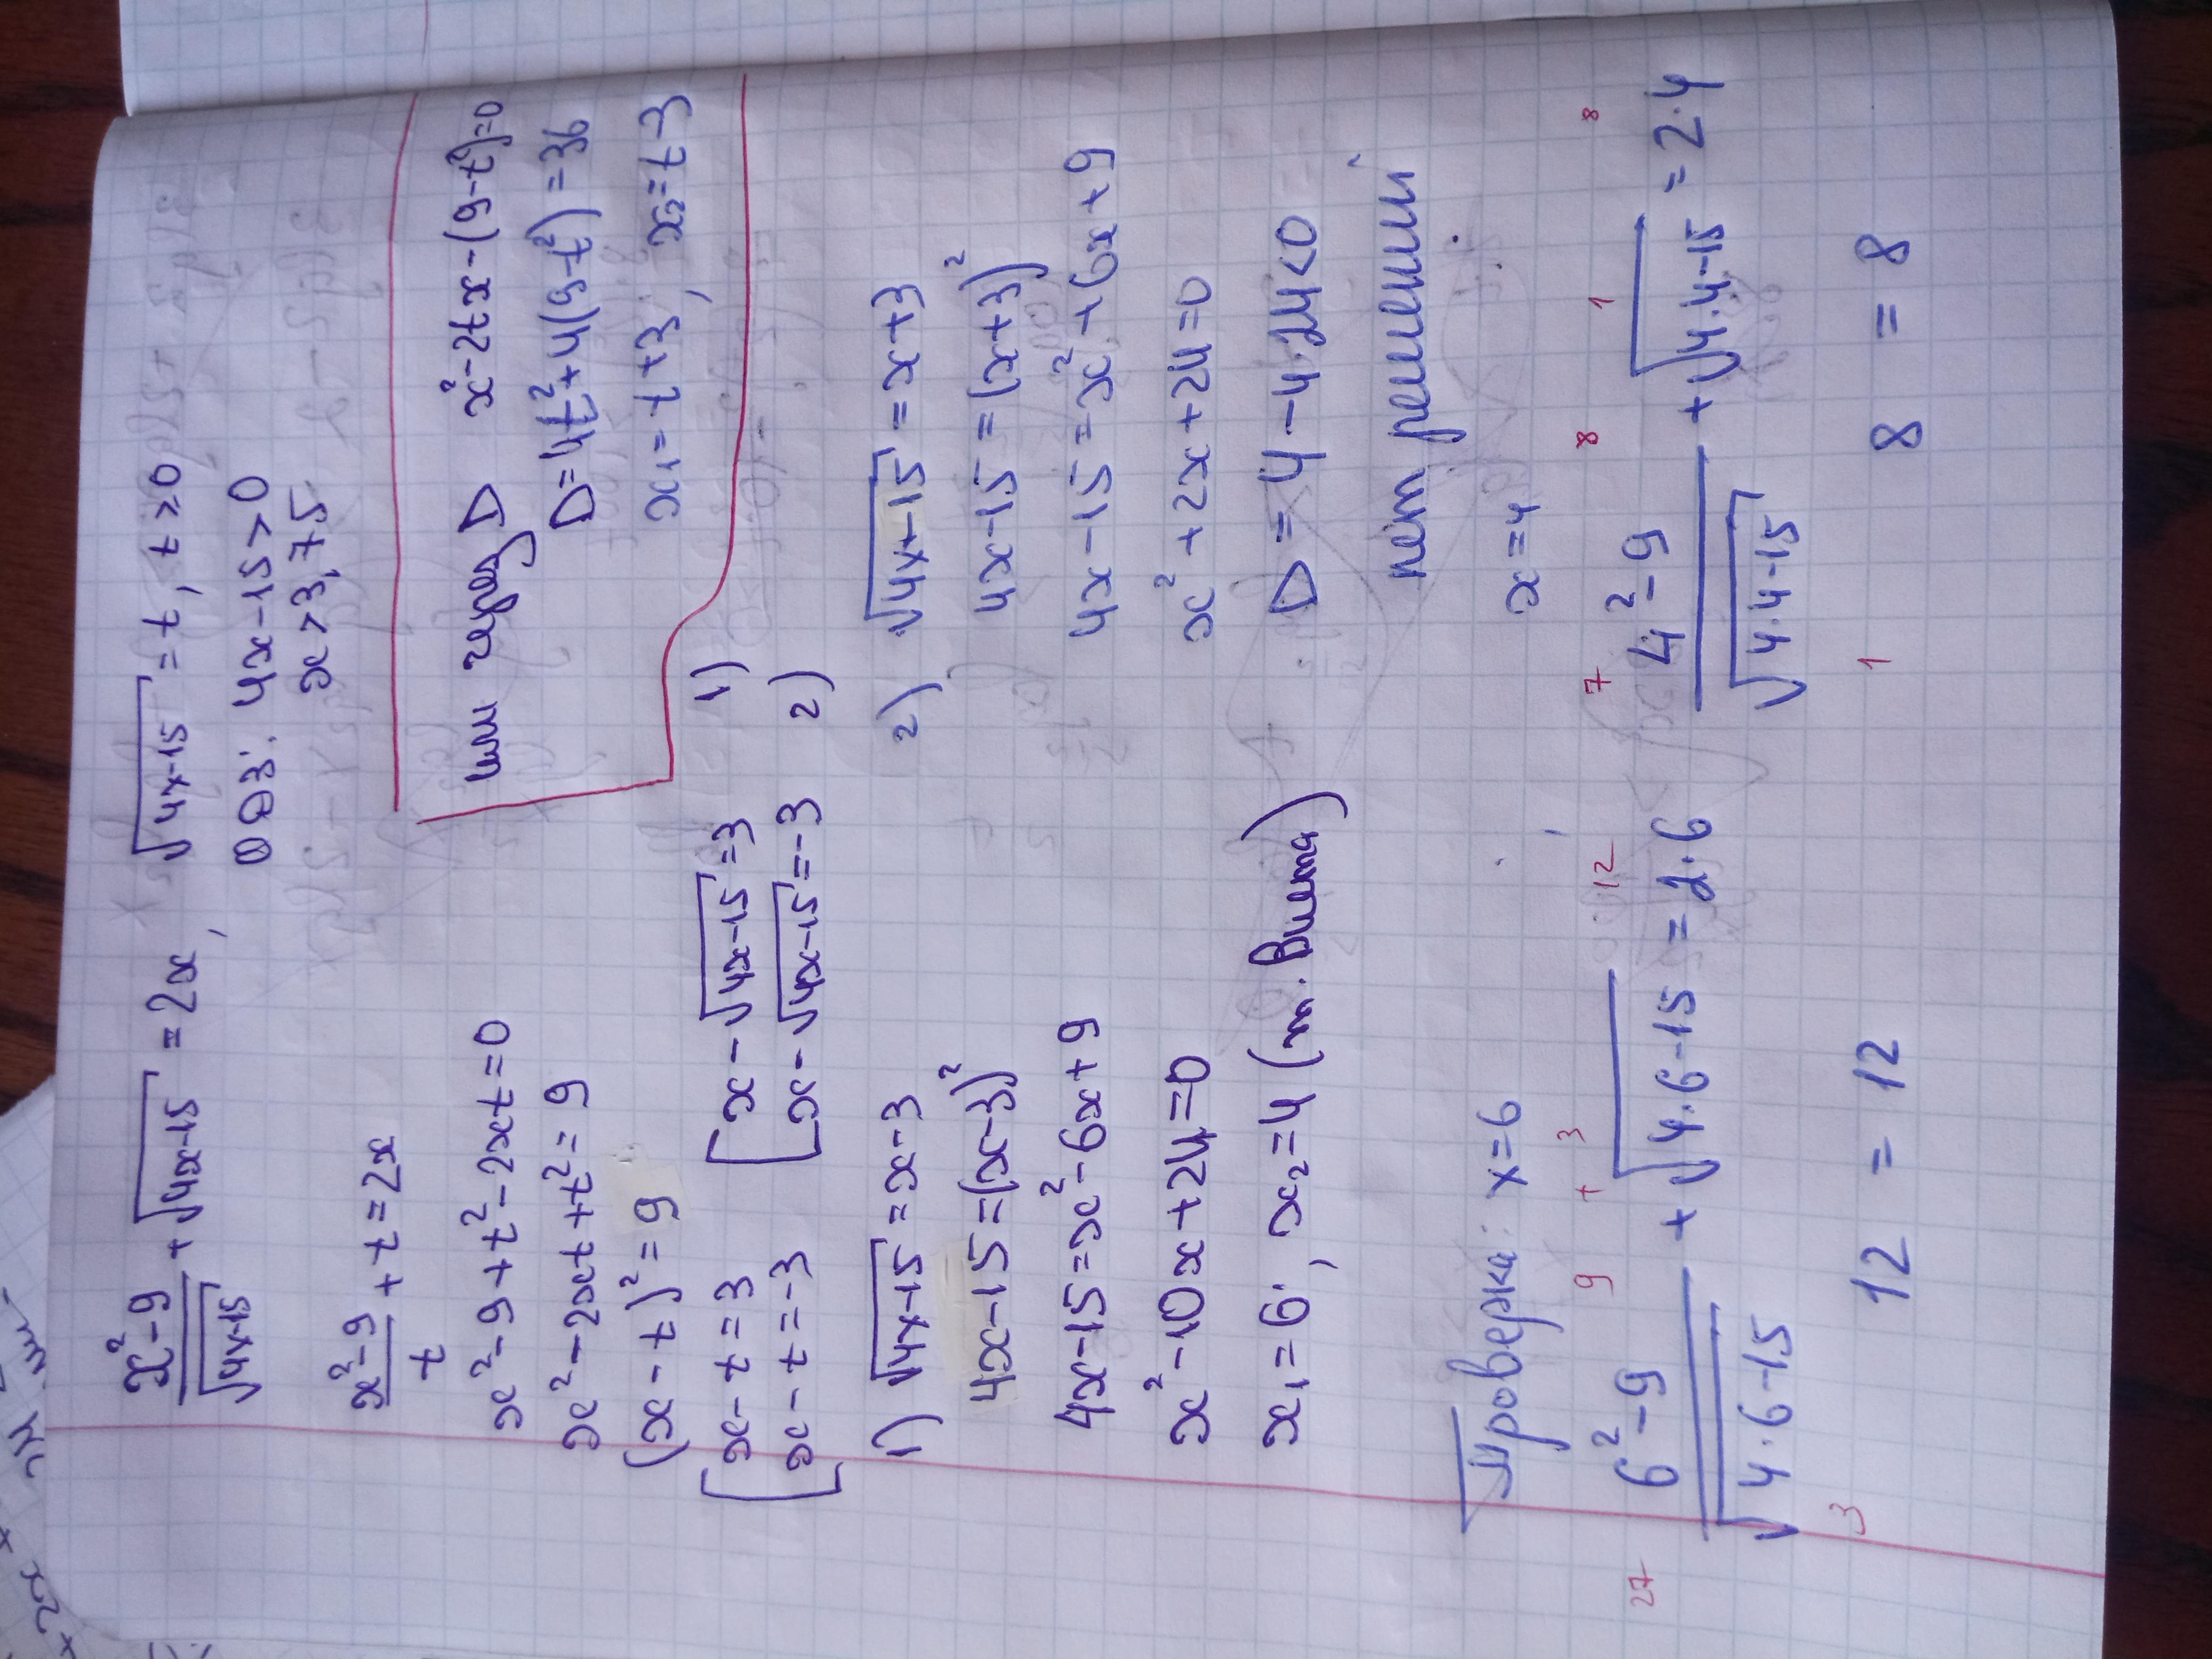 (x²-9)/√(4x-15) + √(4x-15) = 2x, √(4x-15) = t, t>0
ОДЗ: 4x-15>0
x>3,75
(x²-9)/t + t = 2x
x²-9+t²-2xt=0
x²-2xt+t²=9
(x-t)²=9
[x-t=3
[x-t=-3
[x-√(4x-15)=3 1)
[x-√(4x-15)=-3 2)
или через D x²-2tx-(9-t²)=0
D=4t²+4(9-t²)=36
x₁=t+3, x₂=t-3
1) √(4x-15)=x-3
4x-15=(x-3)²
4x-15=x²-6x+9
x²-10x+24=0
x₁=6, x₂=4 (т. Виета)
2) √(4x-15)=x+3
4x-15=(x+3)²
4x-15=x²+6x+9
x²+2x+24=0
D=4-4·24<0
нет решений
Проверка: x=6
9 + 3 12
(6²-9)/√(4·6-15) + √(4·6-15) = 2·6
27
3
12 = 12
x=4
7 8 1 8
(4²-9)/√(4·4-15) + √(4·4-15) = 2·4
1
8 = 8